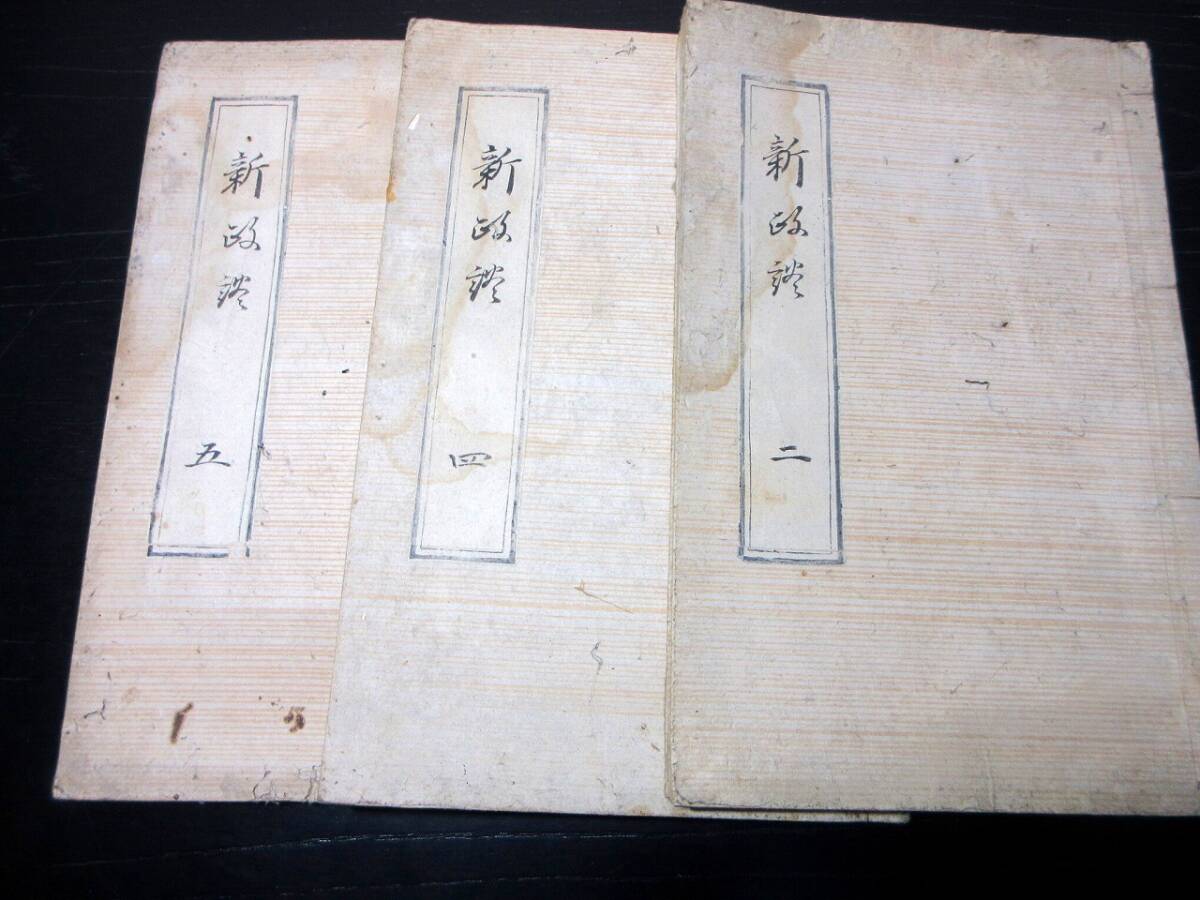 新政談 二
新政談 四
新政談 五